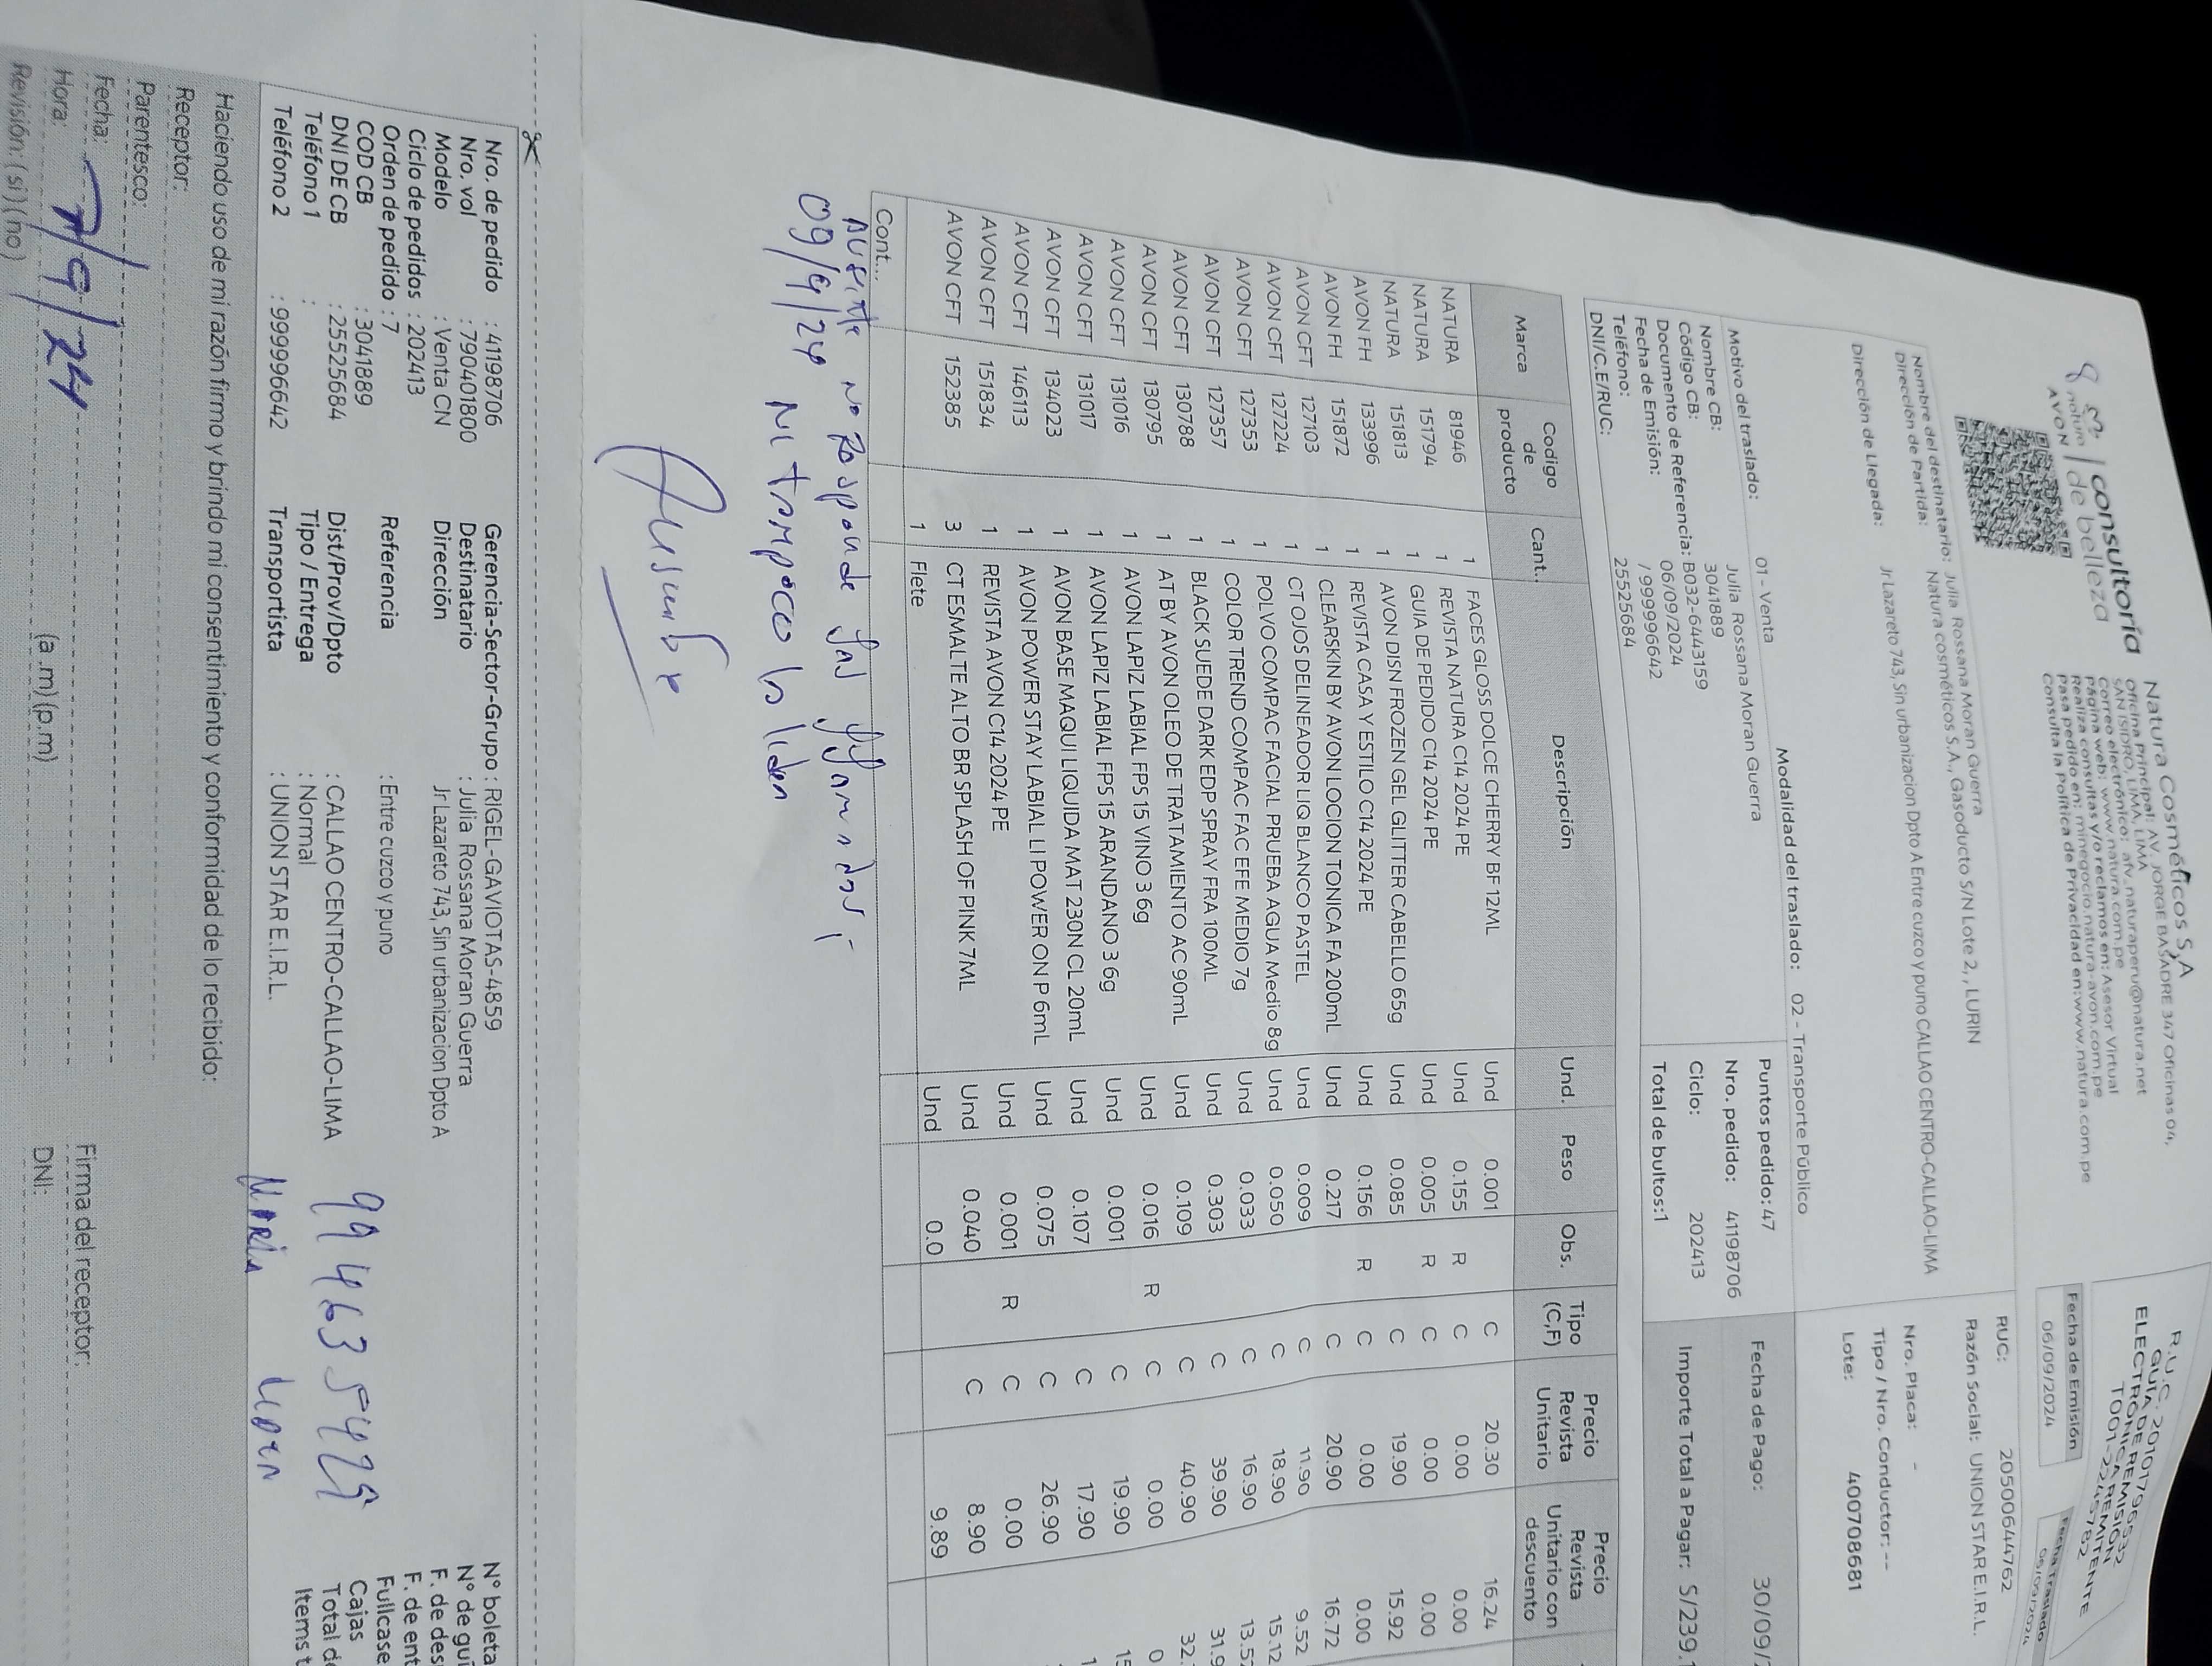 natura | consultoría
AVON | de belleza
Natura Cosméticos S,A
Oficina Principal: AV. JORGE BASADRE 347 Oficinas 04,
SAN ISIDRO, LIMA, LIMA
Correo electrónico: afv_naturaperu@natura.net
Página web: www.natura.com.pe
Realiza consultas y/o reclamos en: Asesor Virtual
Pasa pedido en: minegocio.natura-avon.com.pe
Consulta la Política de Privacidad en:www.natura.com.pe
GUÍA DE REMISIÓN
ELECTRÓNICA REMITENTE
Fecha de Emisión
06/09/2024
Fecha Traslado
06/09/2024
Nombre del destinatario: Julia Rossana Moran Guerra
Dirección de Partida: Natura cosméticos S.A., Gasoducto S/N Lote 2, , LURIN
Dirección de Llegada: Jr Lazareto 743, Sin urbanizacion Dpto A Entre cuzco y puno CALLAO CENTRO-CALLAO-LIMA
RUC: 20500644762
Razón Social: UNION STAR E.I.R.L.
Nro. Placa: -
Tipo / Nro. Conductor: --
Lote: 400708681
Motivo del traslado: 01 - Venta
Modalidad del traslado: 02 - Transporte Público
Nombre CB: Julia Rossana Moran Guerra
Código CB: 3041889
Documento de Referencia: B032-6443159
Fecha de Emisión: 06/09/2024
Teléfono: / 999996642
DNI/C.E/RUC: 25525684
Puntos pedido: 47
Nro. pedido: 41198706
Ciclo: 202413
Total de bultos:1
Fecha de Pago: 30/09/
Importe Total a Pagar: S/239.
Marca Codigo de producto Cant.. Descripción Und. Peso Obs. Tipo (C,F) Precio Revista Unitario Precio Revista Unitario con descuento
NATURA 81946 1 FACES GLOSS DOLCE CHERRY BF 12ML Und 0.001 C 20.30 16.24
NATURA 151794 1 REVISTA NATURA C14 2024 PE Und 0.155 R C 0.00 0.00
NATURA 151813 1 GUIA DE PEDIDO C14 2024 PE Und 0.005 R C 0.00 0.00
AVON FH 133996 1 AVON DISN FROZEN GEL GLITTER CABELLO 65g Und 0.085 C 19.90 15.92
AVON FH 151872 1 REVISTA CASA Y ESTILO C14 2024 PE Und 0.156 R C 0.00 0.00
AVON CFT 127103 1 CLEARSKIN BY AVON LOCION TONICA FA 200mL Und 0.217 C 20.90 16.72
AVON CFT 127224 1 CT OJOS DELINEADOR LIQ BLANCO PASTEL Und 0.009 C 11.90 9.52
AVON CFT 127353 1 POLVO COMPAC FACIAL PRUEBA AGUA Medio 8g Und 0.050 C 18.90 15.12
AVON CFT 127357 1 COLOR TREND COMPAC FAC EFE MEDIO 7g Und 0.033 C 16.90 13.5
AVON CFT 130788 1 BLACK SUEDE DARK EDP SPRAY FRA 100ML Und 0.303 C 39.90 31.9
AVON CFT 130795 1 AT BY AVON OLEO DE TRATAMIENTO AC 90mL Und 0.109 C 40.90 32.
AVON CFT 131016 1 AVON LAPIZ LABIAL FPS 15 VINO 3 6g Und 0.016 R C 0.00 0
AVON CFT 131017 1 AVON LAPIZ LABIAL FPS 15 ARANDANO 3 6g Und 0.001 C 19.90 15
AVON CFT 134023 1 AVON BASE MAQUI LIQUIDA MAT 230N CL 20mL Und 0.107 C 17.90 1
AVON CFT 146113 1 AVON POWER STAY LABIAL LI POWER ON P 6mL Und 0.075 C 26.90
AVON CFT 151834 1 REVISTA AVON C14 2024 PE Und 0.001 R C 0.00
AVON CFT 152385 3 CT ESMALTE ALTO BR SPLASH OF PINK 7ML Und 0.040 C 8.90
1 Flete Und 0.0 9.89
Cont...
Ausente no responde las llamadas i
09/9/24 Ni tampoco la lider
Ausente
Nro. de pedido : 41198706
Nro. vol : 790401800
Modelo : Venta CN
Ciclo de pedidos : 202413
Orden de pedido : 7
COD CB : 3041889
DNI DE CB : 25525684
Teléfono 1 :
Teléfono 2 : 999996642
Gerencia-Sector-Grupo : RIGEL-GAVIOTAS-4859
Destinatario : Julia Rossana Moran Guerra
Dirección Jr Lazareto 743, Sin urbanizacion Dpto A
Referencia : Entre cuzco y puno
Dist/Prov/Dpto : CALLAO CENTRO-CALLAO-LIMA
Tipo / Entrega : Normal
Transportista : UNION STAR E.I.R.L.
N° boleta
N° de guí
F. de des
F. de ent
Fullcase
Cajas
Total de
Items t
994635425
Haciendo uso de mi razón firmo y brindo mi consentimiento y conformidad de lo recibido:
Receptor:
Parentesco:
Fecha: 7/9/24
Hora: (a .m) (p.m)
Revisión: (si) (no)
Firma del receptor:
DNI: